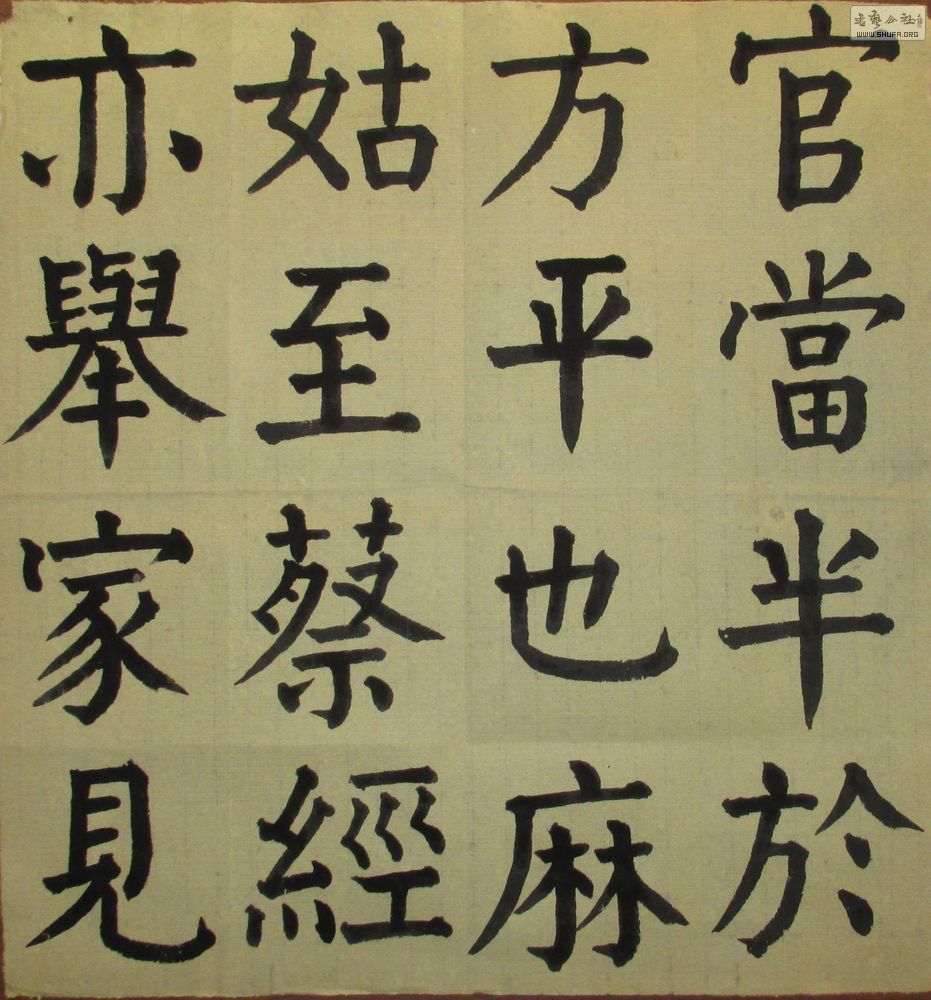 官當半於
方平也麻
姑至蔡經
亦舉家見
WWW.SHUFA.ORG